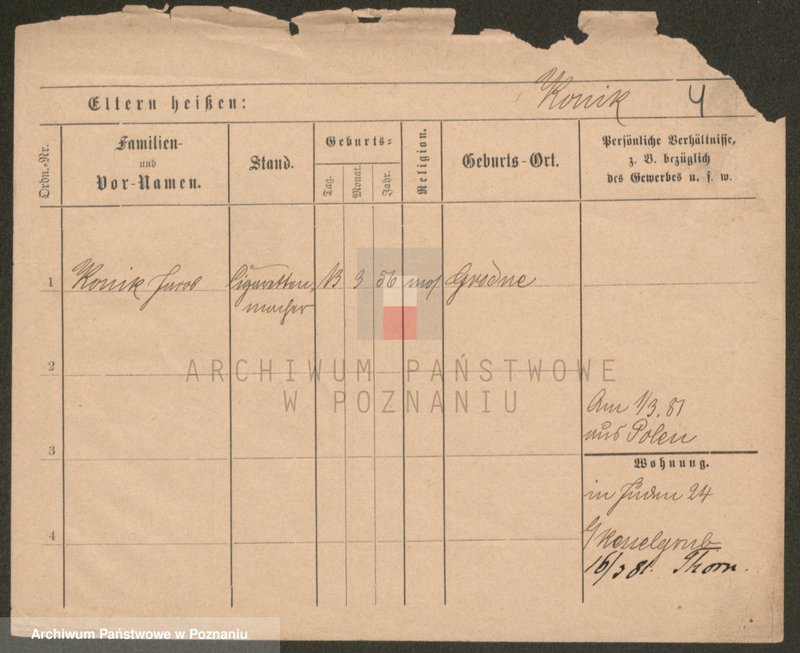 Eltern heißen:
Konik 4
Ordn.-Nr.
Familien-
und
Vor-Namen.
Stand.
Geburts-
Tag.
Monat.
Jahr.
Religion.
Geburts-Ort.
Persönliche Verhältnisse,
z. B. bezüglich
des Gewerbes u. s. w.
1 Konik Jacob Cigaretten 13 3 56 mos Grodno
macher
2
3
4
ARCHIWUM PAŃSTWOWE
W POZNANIU
Am 1/3. 81
aus Polen
Wohnung.
in Juden 24
16/3 81. Thorn.
Archiwum Państwowe w Poznaniu